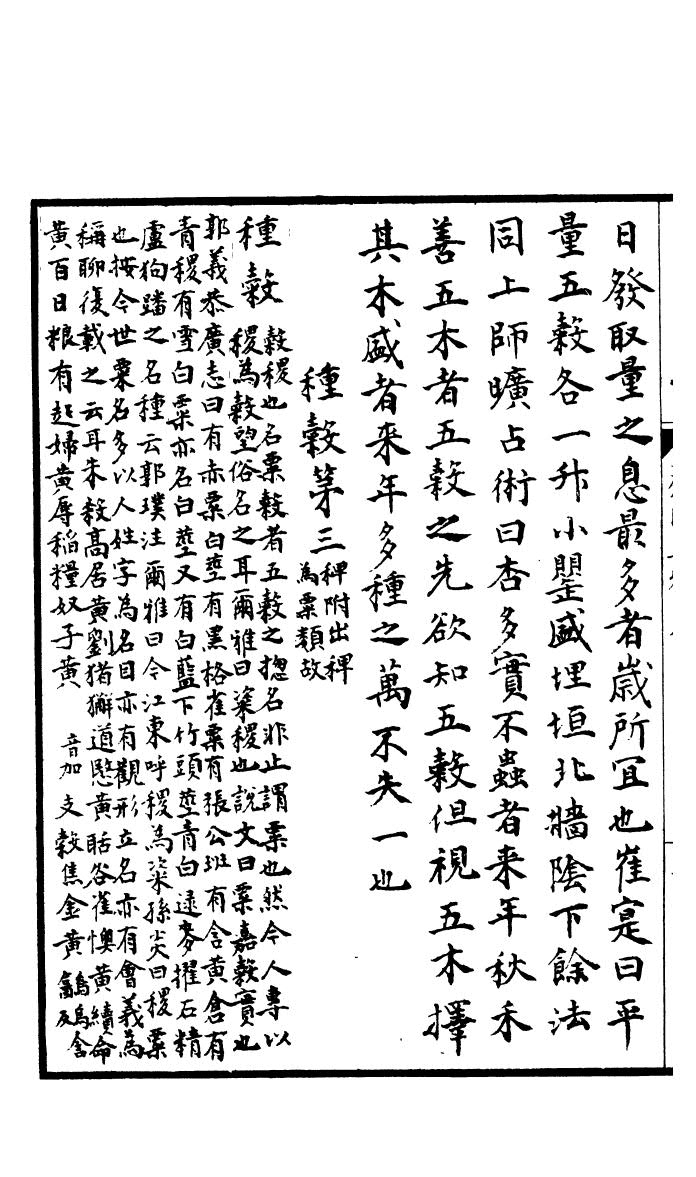 日發取量之息最多者歲所冝也崔寔曰平
量五穀各一升小甖盛埋垣北牆陰下餘法
同上師曠占術曰杏多實不蟲者来年秋禾
善五木者五穀之先欲知五穀但視五木擇
其木盛者来年多種之萬不失一也
種穀第三稗附出稗
為粟類故
種穀
穀稷也名粟穀者五穀之揔名非止謂粟也然今人專以
稷為穀望俗名之耳爾雅曰粢稷也說文曰粟嘉穀實也
郭義恭廣志曰有赤粟白莖有黑格雀粟有張公班有含黃倉有
青稷有雪白粟亦名白莖又有白藍下竹頭莖青白逯麥擢石精
盧狗蹯之名種云郭璞注爾雅曰今江東呼稷為粢孫炎曰稷粟
也按今世粟名多以人姓字為名目亦有觀形立名亦有會義為
稱聊復載之云耳朱穀高居黃劉猪獬道愍黃聒谷雀懊黃續命
黃百日粮有起婦黃辱稻糧奴子黃
音加支穀焦金黃鶬鳥含
反